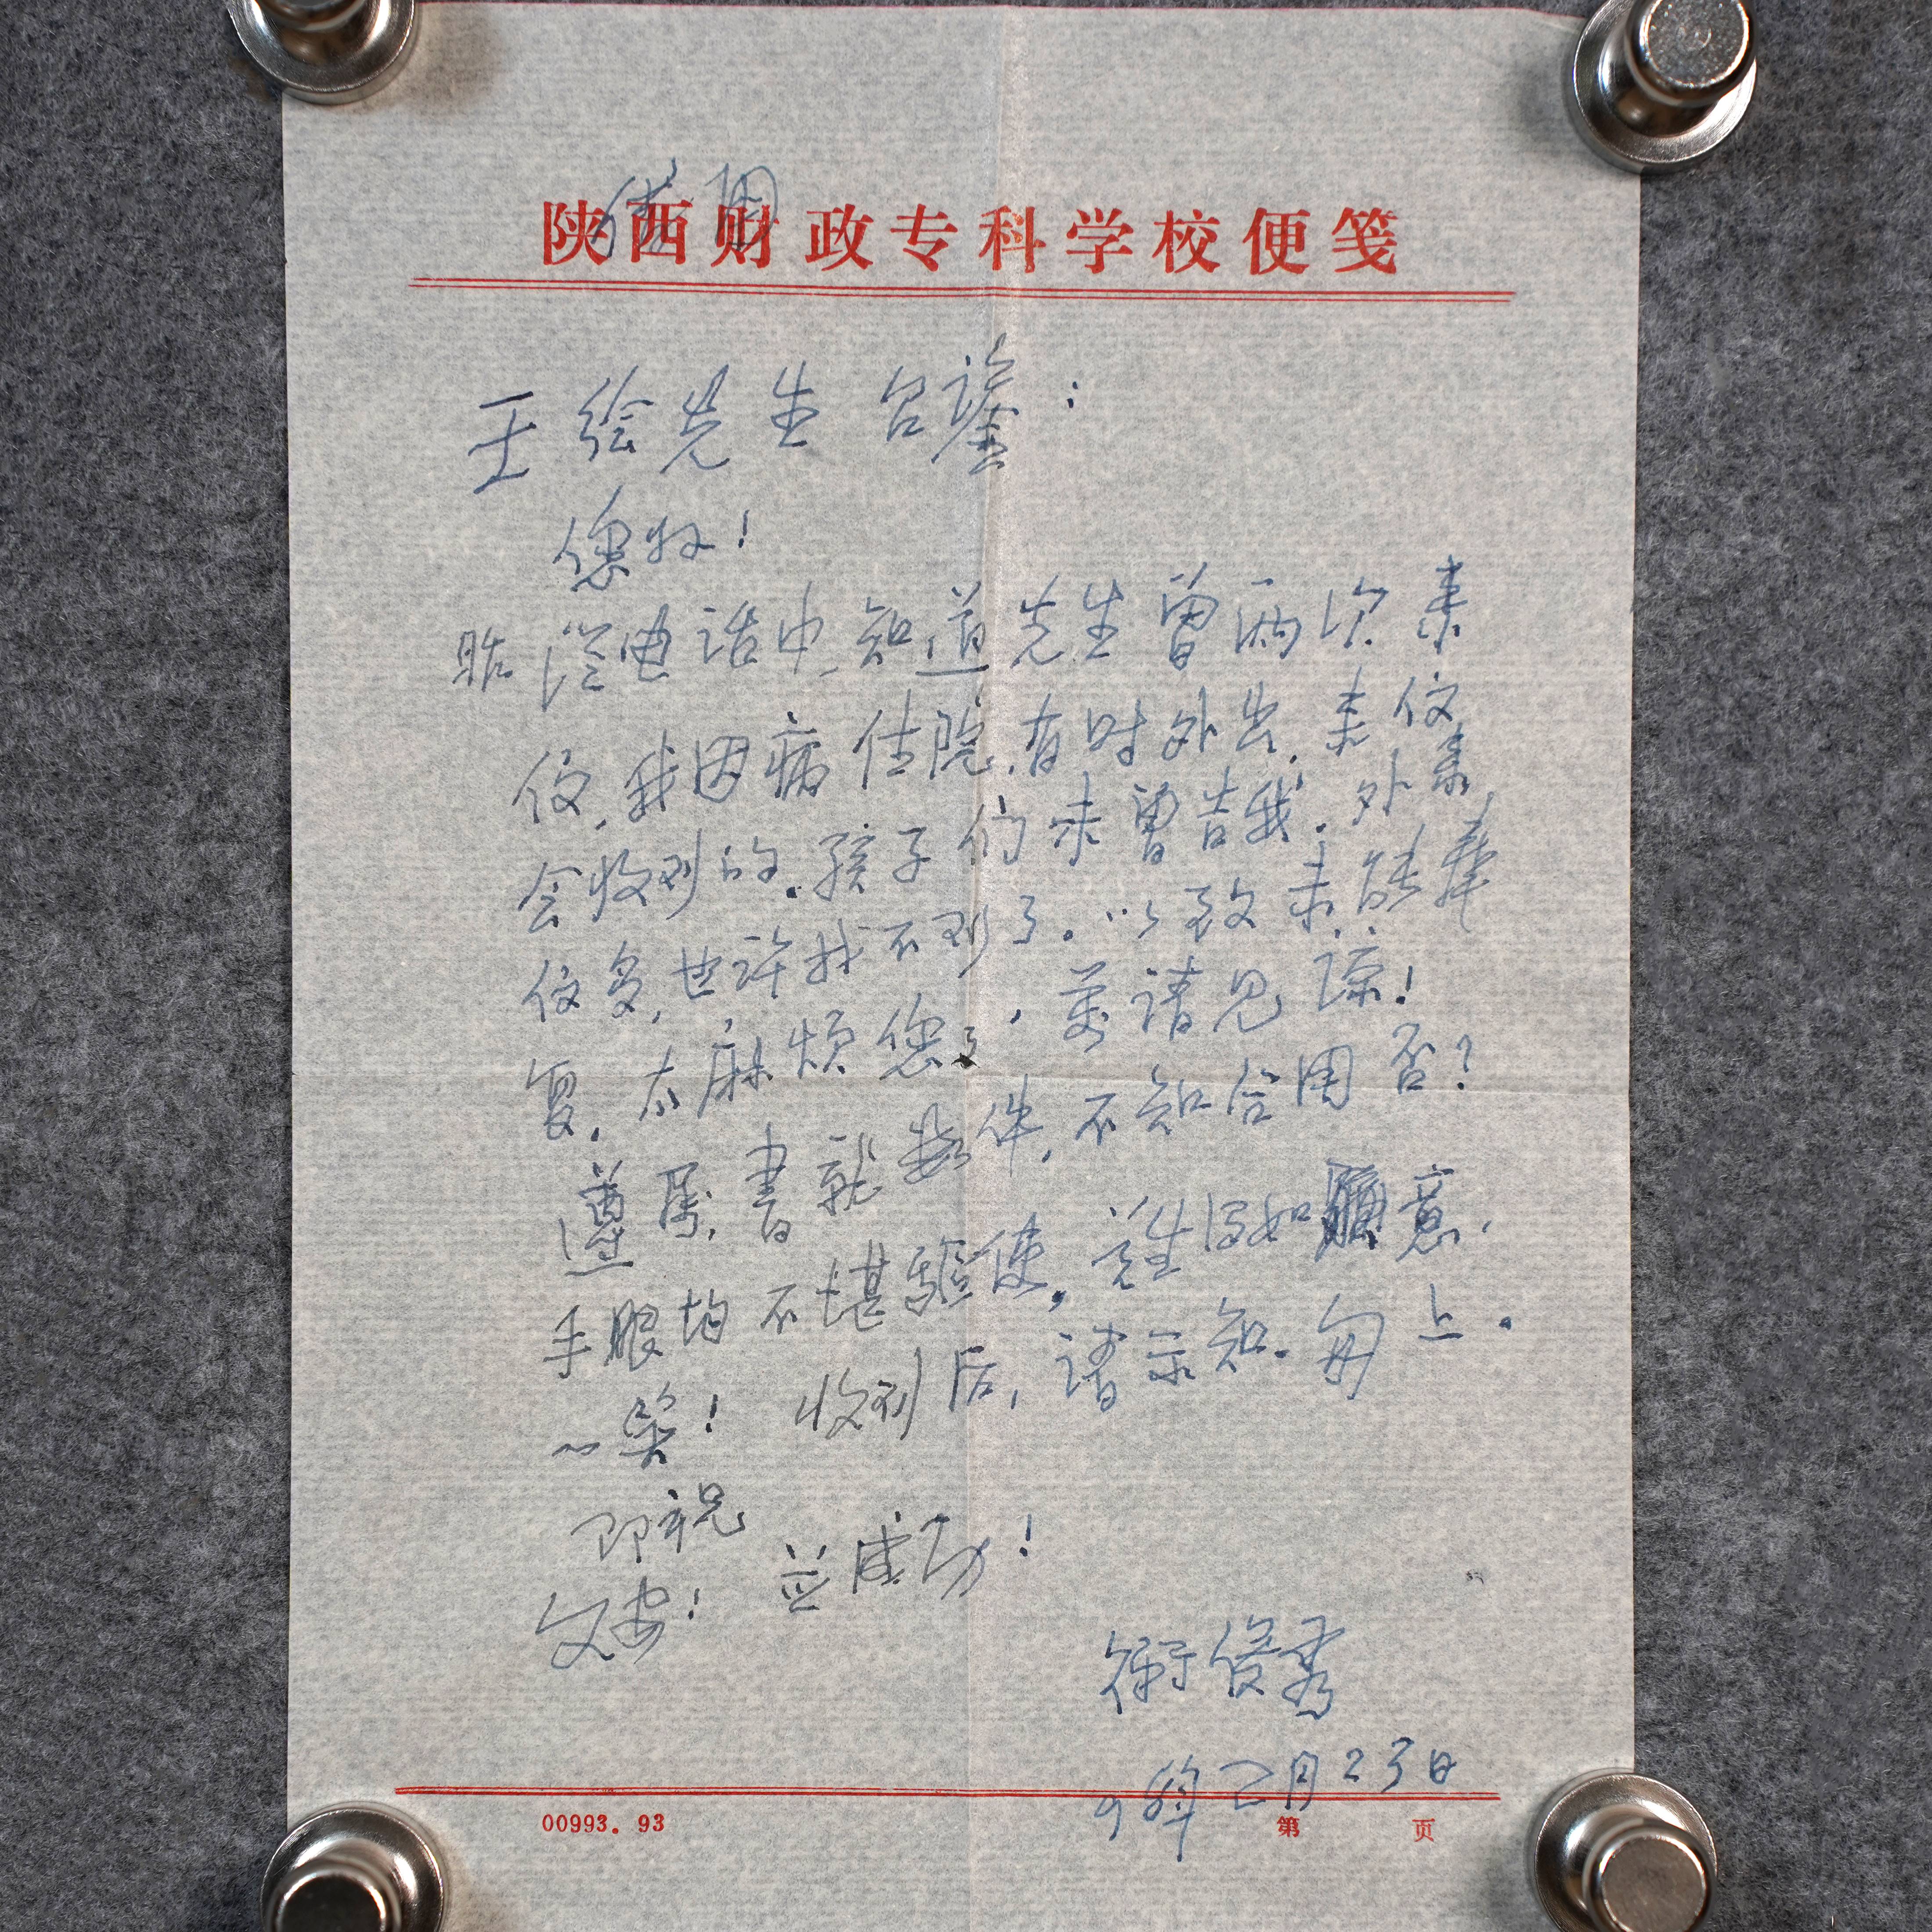 陕西财政专科学校便笺
王绘先生台鉴：
您好！
昨从电话中，知道先生曾两次来
信，我因病住院，有时外出，来信
会收到的。孩子们未曾告我，外来
信多，也许找不到了。以致未能奉
复，太麻烦您了，万请见谅！
遵属，书就数件，不知合用否？
手眼均不堪驱使，先生假如 意，
一笑！收到后，请示知。匆上。
即祝
文安！并成功！
卫俊秀
98年2月23日
00993.93
第 页